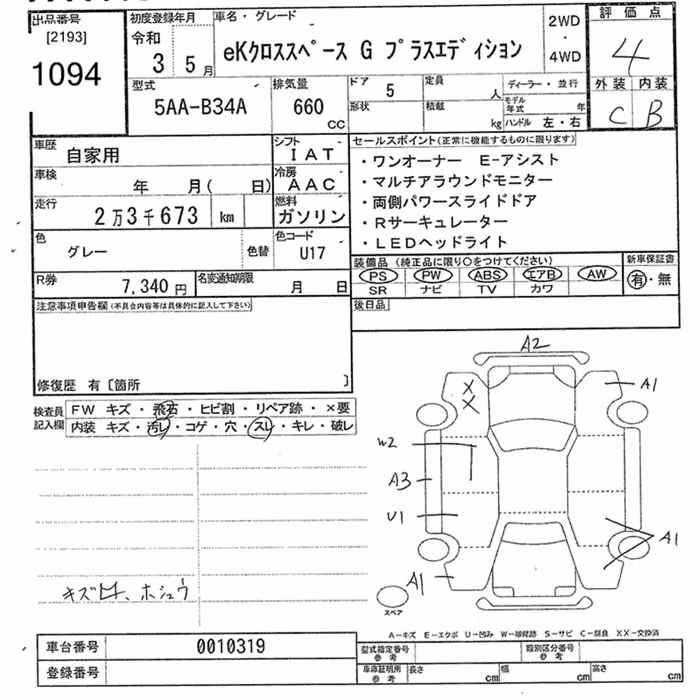 出品番号 初度登録年月 車名・グレード 2WD ・ 4WD 評価点
[2193] 令和 3年 5月 eKクロススペース G プラスエディション 4
1094
型式 排気量 ドア 5 定員 人 ディーラー・並行 外装 内装
5AA-B34A 660 CC 形状 積載 kg モデル年式 年 C B
ハンドル 左・右
車歴 自家用 シフト IAT セールスポイント(正常に機能するものに限ります)
車検 年 月( 日) 冷房 AAC ・ワンオーナー E-アシスト
・マルチアラウンドモニター
走行 2万3千673 km 燃料 ガソリン ・両側パワースライドドア
・Rサーキュレーター
色 グレー 色替 色コード U17 ・LEDヘッドライト
装備品(純正品に限り○をつけてください) 新車保証書
R券 7,340円 名変通知期限 月 日 PS PW ABS エアB AW 有・無
SR ナビ TV カワ
注意事項申告欄(不具合内容等は具体的に記入して下さい) 後日品
修復歴 有[箇所 ]
検査員記入欄 FW キズ・飛石・ヒビ割・リペア跡・×要
内装 キズ・汚レ・コゲ・穴・スレ・キレ・破レ
A2
X
X
A1
W2
A3
U1
A1
A1
スペア
A-キズ E-エクボ U-凹み W-補修跡 S-サビ C-腐食 XX-交換済
車台番号 0010319 型式指定番号 参考 類別区分番号 参考
登録番号 車庫証明所 参考 長さ cm 幅 cm 高さ cm